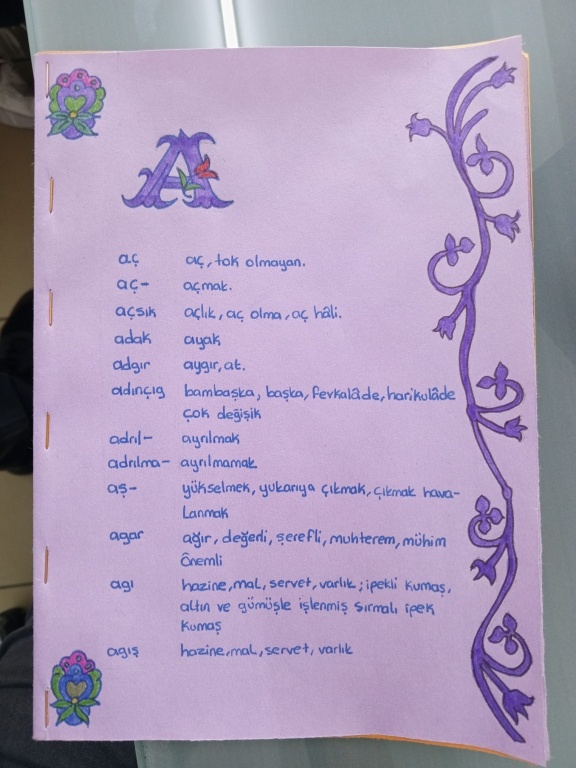 A
aç aç, tok olmayan.
aç- açmak.
açsık açlık, aç olma, aç hâli.
adak ayak
adgır aygır, at.
adınçıg bambaşka, başka, fevkalâde, harikulâde
çok değişik
adrıl- ayrılmak
adrılma- ayrılmamak
aş- yükselmek, yukarıya çıkmak, çıkmak hava-
lanmak
agar ağır, değerli, şerefli, muhterem, mühim
önemli
agı hazine, mal, servet, varlık; ipekli kumaş,
altın ve gümüşle işlenmiş sırmalı ipek
kumaş
agış hazine, mal, servet, varlık